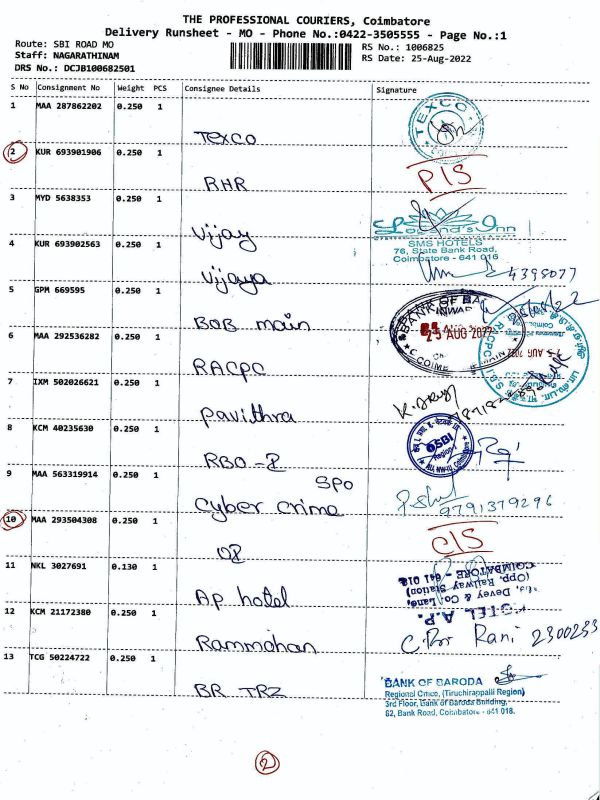 THE PROFESSIONAL COURIERS, Coimbatore
Delivery Runsheet - MO - Phone No.:0422-3505555 - Page No.:1
Route: SBI ROAD MO
RS No.: 1006825
Staff: NAGARATHINAM
RS Date: 25-Aug-2022
DRS No.: DCJB100682501
S No Consignment No Weight PCS Consignee Details Signature
1 MAA 287862202 0.250 1
TEXCO
TEXCO
2 KUR 693901906 0.250 1
RHR
P/S
3 MYD 5638353 0.250 1
Vijay
Legend's Inn
SMS HOTELS
76, State Bank Road,
Coimbatore - 641 016
4 KUR 693902563 0.250 1
Vijaya
4398077
5 GPM 669595 0.250 1
BOB main
BANK OF BA
25 AUG 2022
6 MAA 292536282 0.250 1
RACPC
RACPC
SBI
7 IXM 502026621 0.250 1
Pavithra
8 KCM 40235630 0.250 1
RBO-2
SBI
Region-1
9 MAA 563319914 0.250 1
SPO
Cyber crime
9791379296
10 MAA 293504308 0.250 1
C/S
11 NKL 3027691 0.130 1
A.p hotel
HOTEL A.P.
Devey & Co. Lane,
(Opp. Railway Station)
COIMBATORE - 641 018
12 KCM 21172380 0.250 1
Rammohan
Rani 2300233
13 TCG 50224722 0.250 1
BR TRZ
BANK OF BARODA
Regional Office, (Tiruchirappalli Region)
3rd Floor, Bank of Baroda Building
82, Bank Road, Coimbatore - 641 018.
2